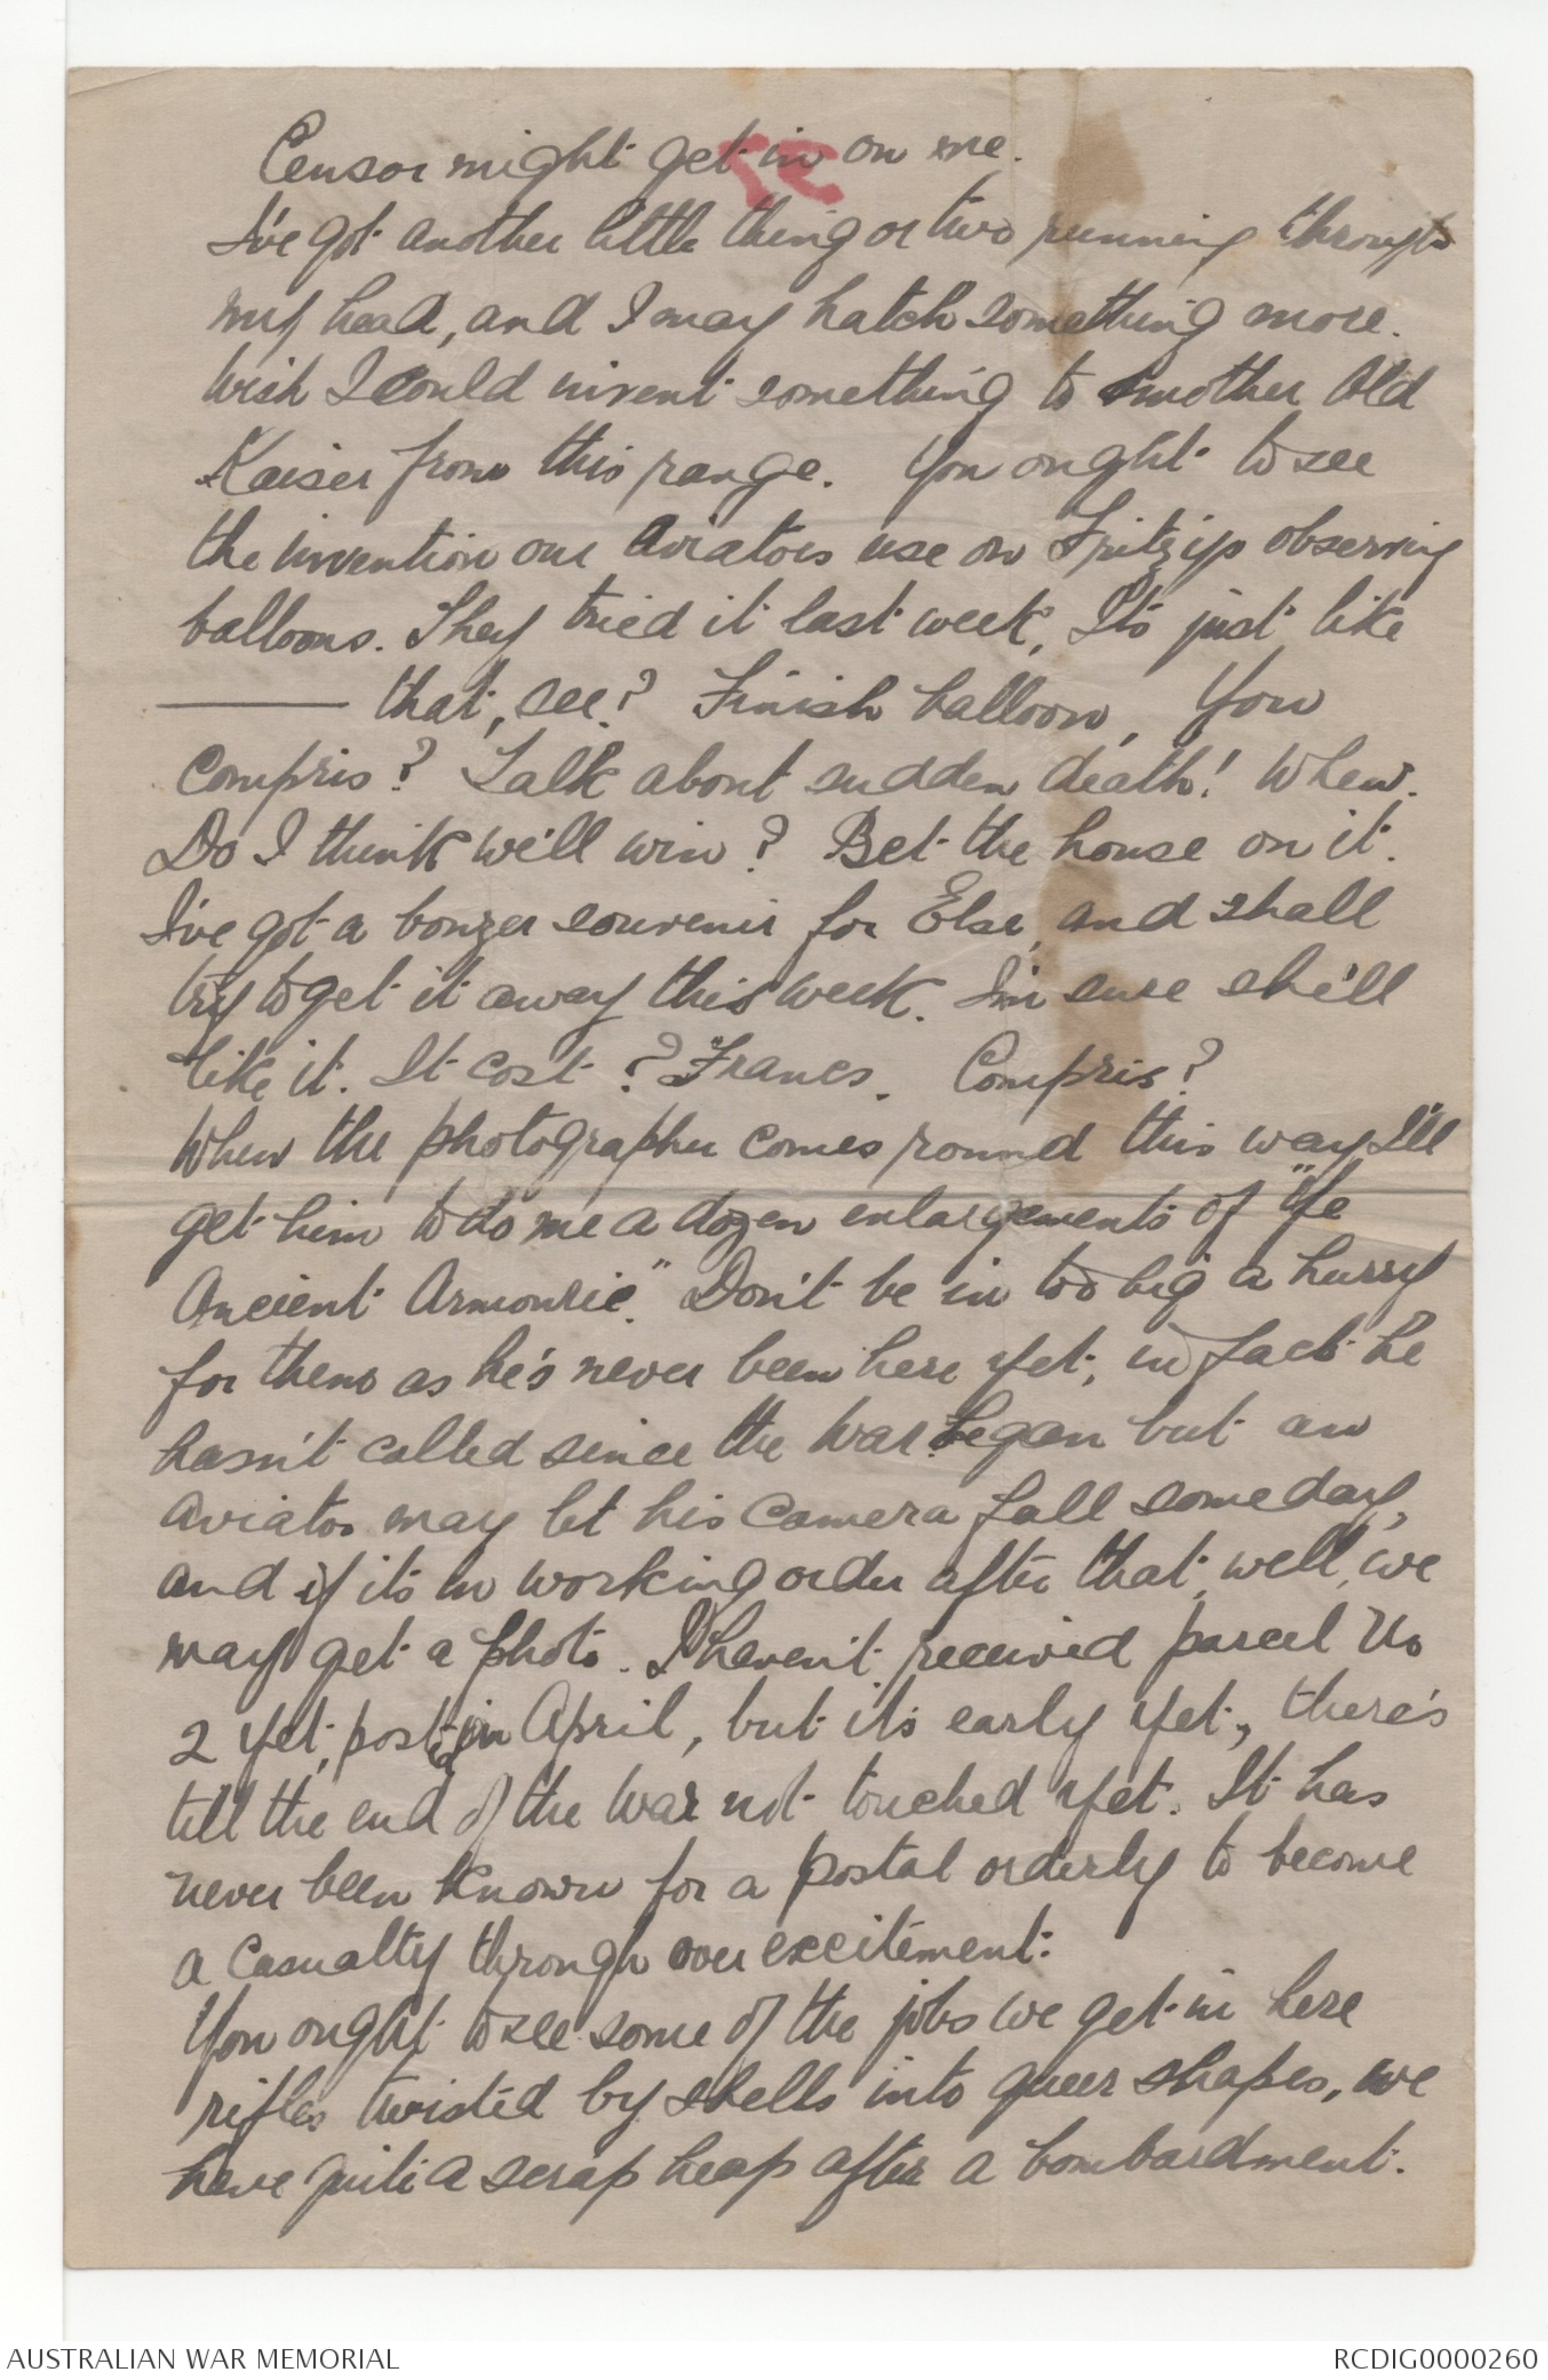 Censor might get in on me.
I've got another little thing or two running through
my head, and I may hatch something more.
Wish I could invent something to smother Old
Kaiser from this range. You ought to see
the invention our Aviators use on Fritzys observing
balloons. They tried it last week, Its just like
——— that, see? Finish balloon, You
Compris? Talk about sudden death! Whew.
Do I think we'll win? Bet the house on it.
I've got a bonzer souvenir for Else, and shall
try to get it away this week. I'm sure she'll
like it. It cost ? Francs. Compris?
When the photographer comes round this way I'll
get him to do me a dozen enlargements of "Ye
Ancient Armourie." Don't be in too big a hurry
for them as he's never been here yet, in fact he
hasn't called since the War began but an
Aviator may let his Camera fall some day,
and if its in working order after that, well, we
may get a photo. I haven't received parcel No
2 yet, posted in April, but its early yet, there's
till the end of the War not touched yet. It has
never been known for a postal orderly to become
a Casualty through over excitement.
You ought to see some of the jobs we get in here
rifles twisted by shells into queer shapes, we
have quite a scrap heap after a bombardment.
AUSTRALIAN WAR MEMORIAL
RCDIG0000260